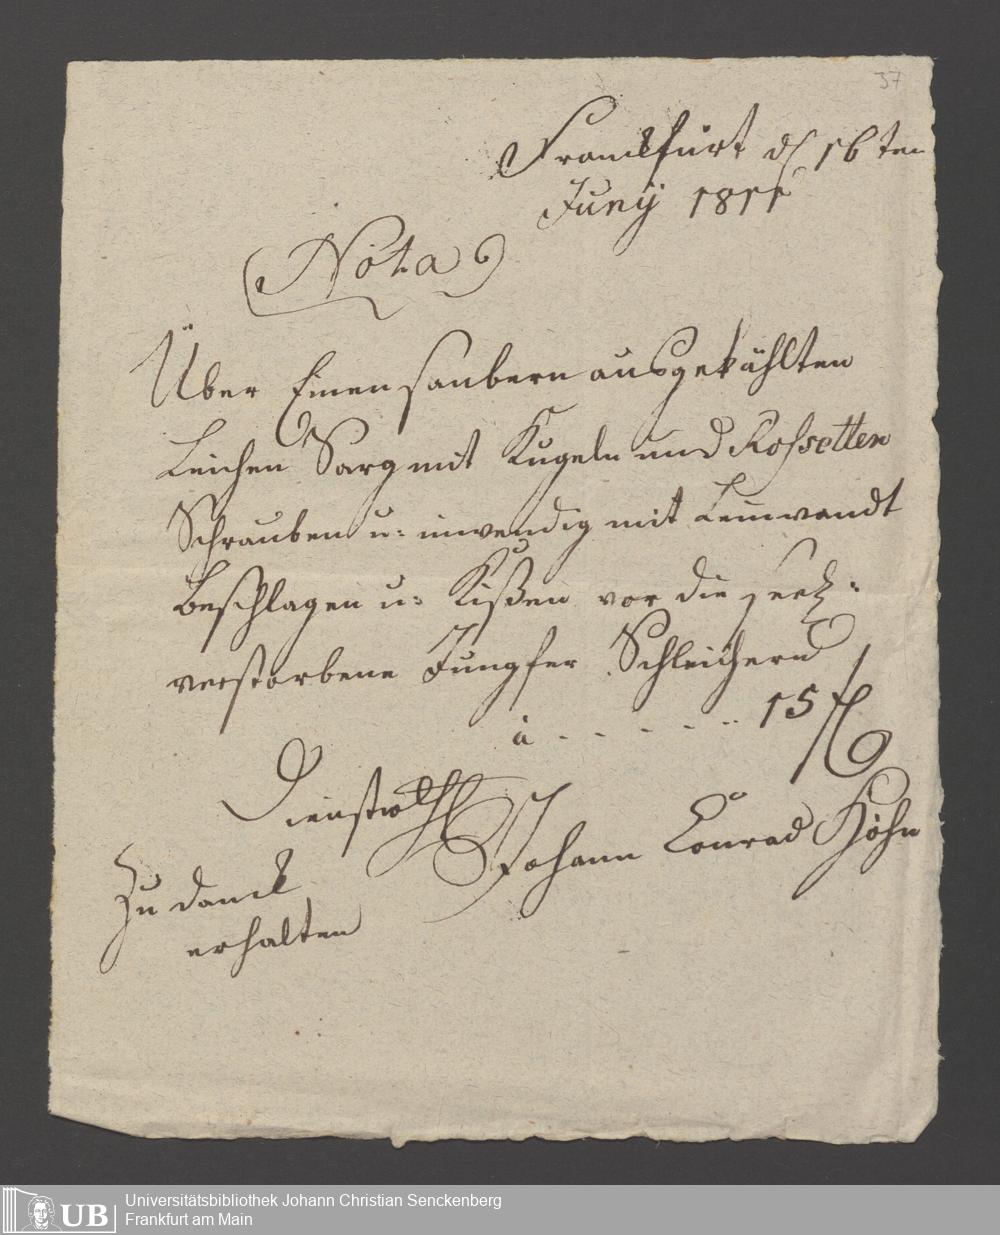 37
Franckfurt d 16ten
Juny 1811
Nota
Über Einen saubern ausgekählten
Leichen Sarg mit Kugeln und Rossetten
Schrauben u: inwendig mit Leinwandt
Beschlagen u: Kißen vor die
verstorbene Jungfer Schleichern
à - - - - - - 15 fl
Dienstw
Johann Conrad Höhn
Zu danck
erhalten
UB Universitätsbibliothek Johann Christian Senckenberg
Frankfurt am Main